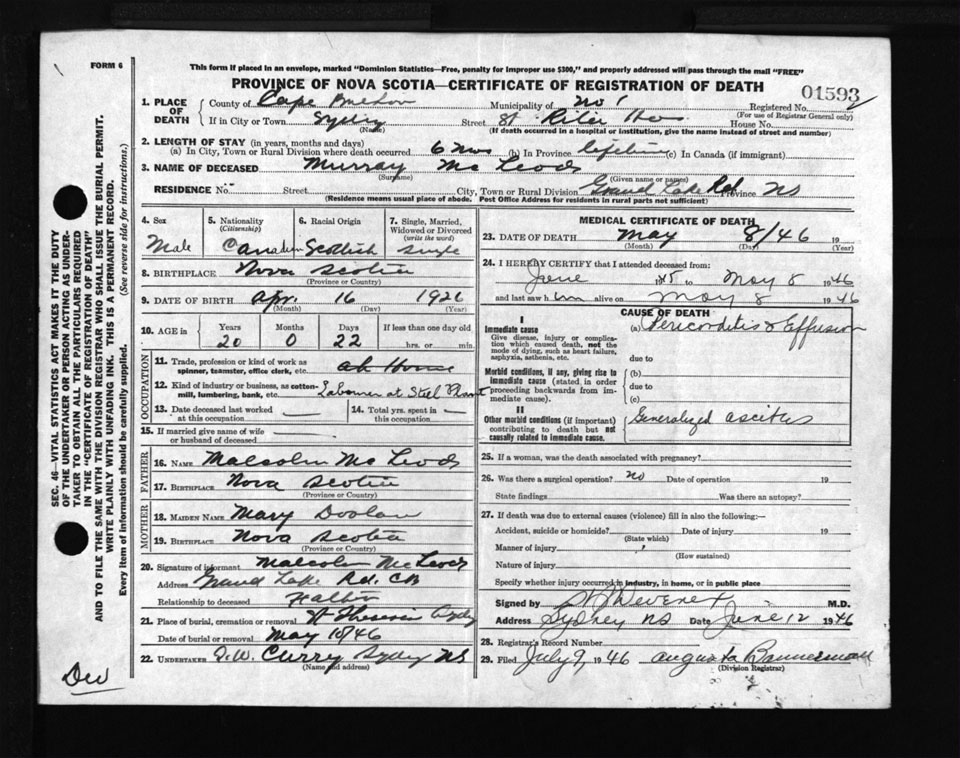 FORM 6
This form if placed in an envelope, marked "Dominion Statistics—Free, penalty for improper use $300," and properly addressed will pass through the mail "FREE"
PROVINCE OF NOVA SCOTIA—CERTIFICATE OF REGISTRATION OF DEATH
01593
1. PLACE OF DEATH { County of Cape Breton Municipality of No 1 Registered No.
(For use of Registrar General only)
If in City or Town Sydney Street St Rita Hos House No.
(Name) (If death occurred in a hospital or institution, give the name instead of street and number)
2. LENGTH OF STAY (in years, months and days)
(a) In City, Town or Rural Division where death occurred 6 mos (b) In Province lifetime (c) In Canada (if immigrant)
3. NAME OF DECEASED Murray Mc Leod
(Surname) (Given name or names)
RESIDENCE No. Street City, Town or Rural Division Grand Lake Rd Province NS
(Residence means usual place of abode. Post Office Address for residents in rural parts not sufficient)
4. Sex Male
5. Nationality (Citizenship) Canadian
6. Racial Origin Scottish
7. Single, Married, Widowed or Divorced (write the word) Single
8. BIRTHPLACE Nova Scotia
(Province or Country)
9. DATE OF BIRTH Apr. 16 1926
(Month) (Day) (Year)
10. AGE in Years Months Days If less than one day old
20 0 22 hrs. or min.
OCCUPATION
11. Trade, profession or kind of work as spinner, teamster, office clerk, etc. at Home
12. Kind of industry or business, as cotton-mill, lumbering, bank, etc. Laborer at Steel Plant
13. Date deceased last worked at this occupation
14. Total yrs. spent in this occupation
15. If married give name of wife or husband of deceased
FATHER
16. NAME Malcolm Mc Leod
17. BIRTHPLACE Nova Scotia
(Province or Country)
MOTHER
18. MAIDEN NAME Mary Doolan
19. BIRTHPLACE Nova Scotia
(Province or Country)
20. Signature of informant Malcolm Mc Leod
Address Grand Lake Rd. CB
Relationship to deceased Father
21. Place of burial, cremation or removal St Theresa Sydney
Date of burial or removal May 10/46
22. UNDERTAKER Curry Sydney NS
(Name and address)
MEDICAL CERTIFICATE OF DEATH
23. DATE OF DEATH May 8/46 19
(Month) (Day) (Year)
24. I HEREBY CERTIFY that I attended deceased from:
June 1945 to May 8 1946
and last saw him alive on May 8 1946
CAUSE OF DEATH
I
Immediate cause (a) Pericarditis & Effusion
Give disease, injury or complication which caused death, not the mode of dying, such as heart failure, asphyxia, asthenia, etc.
due to
Morbid conditions, if any, giving rise to immediate cause (stated in order proceeding backwards from immediate cause).
(b)
due to
(c)
II
Other morbid conditions (if important) contributing to death but not causally related to immediate cause.
Generalized ascites
25. If a woman, was the death associated with pregnancy?
26. Was there a surgical operation? no Date of operation 19
State findings Was there an autopsy?
27. If death was due to external causes (violence) fill in also the following:—
Accident, suicide or homicide? Date of injury 19
(State which)
Manner of injury
(How sustained)
Nature of injury
Specify whether injury occurred in industry, in home, or in public place
Signed by Devenex M.D.
Address Sydney NS Date June 12 1946
28. Registrar's Record Number
29. Filed July 9 1946 Augusta Bannerman
(Division Registrar)
SEC. 46—VITAL STATISTICS ACT MAKES IT THE DUTY
OF THE UNDERTAKER OR PERSON ACTING AS UNDER-
TAKER TO OBTAIN ALL THE PARTICULARS REQUIRED
IN THE "CERTIFICATE OF REGISTRATION OF DEATH"
AND TO FILE THE SAME WITH THE DIVISION REGISTRAR WHO SHALL ISSUE THE BURIAL PERMIT.
WRITE PLAINLY WITH UNFADING INK. THIS IS A PERMANENT RECORD.
Every item of information should be carefully supplied. (See reverse side for instructions.)